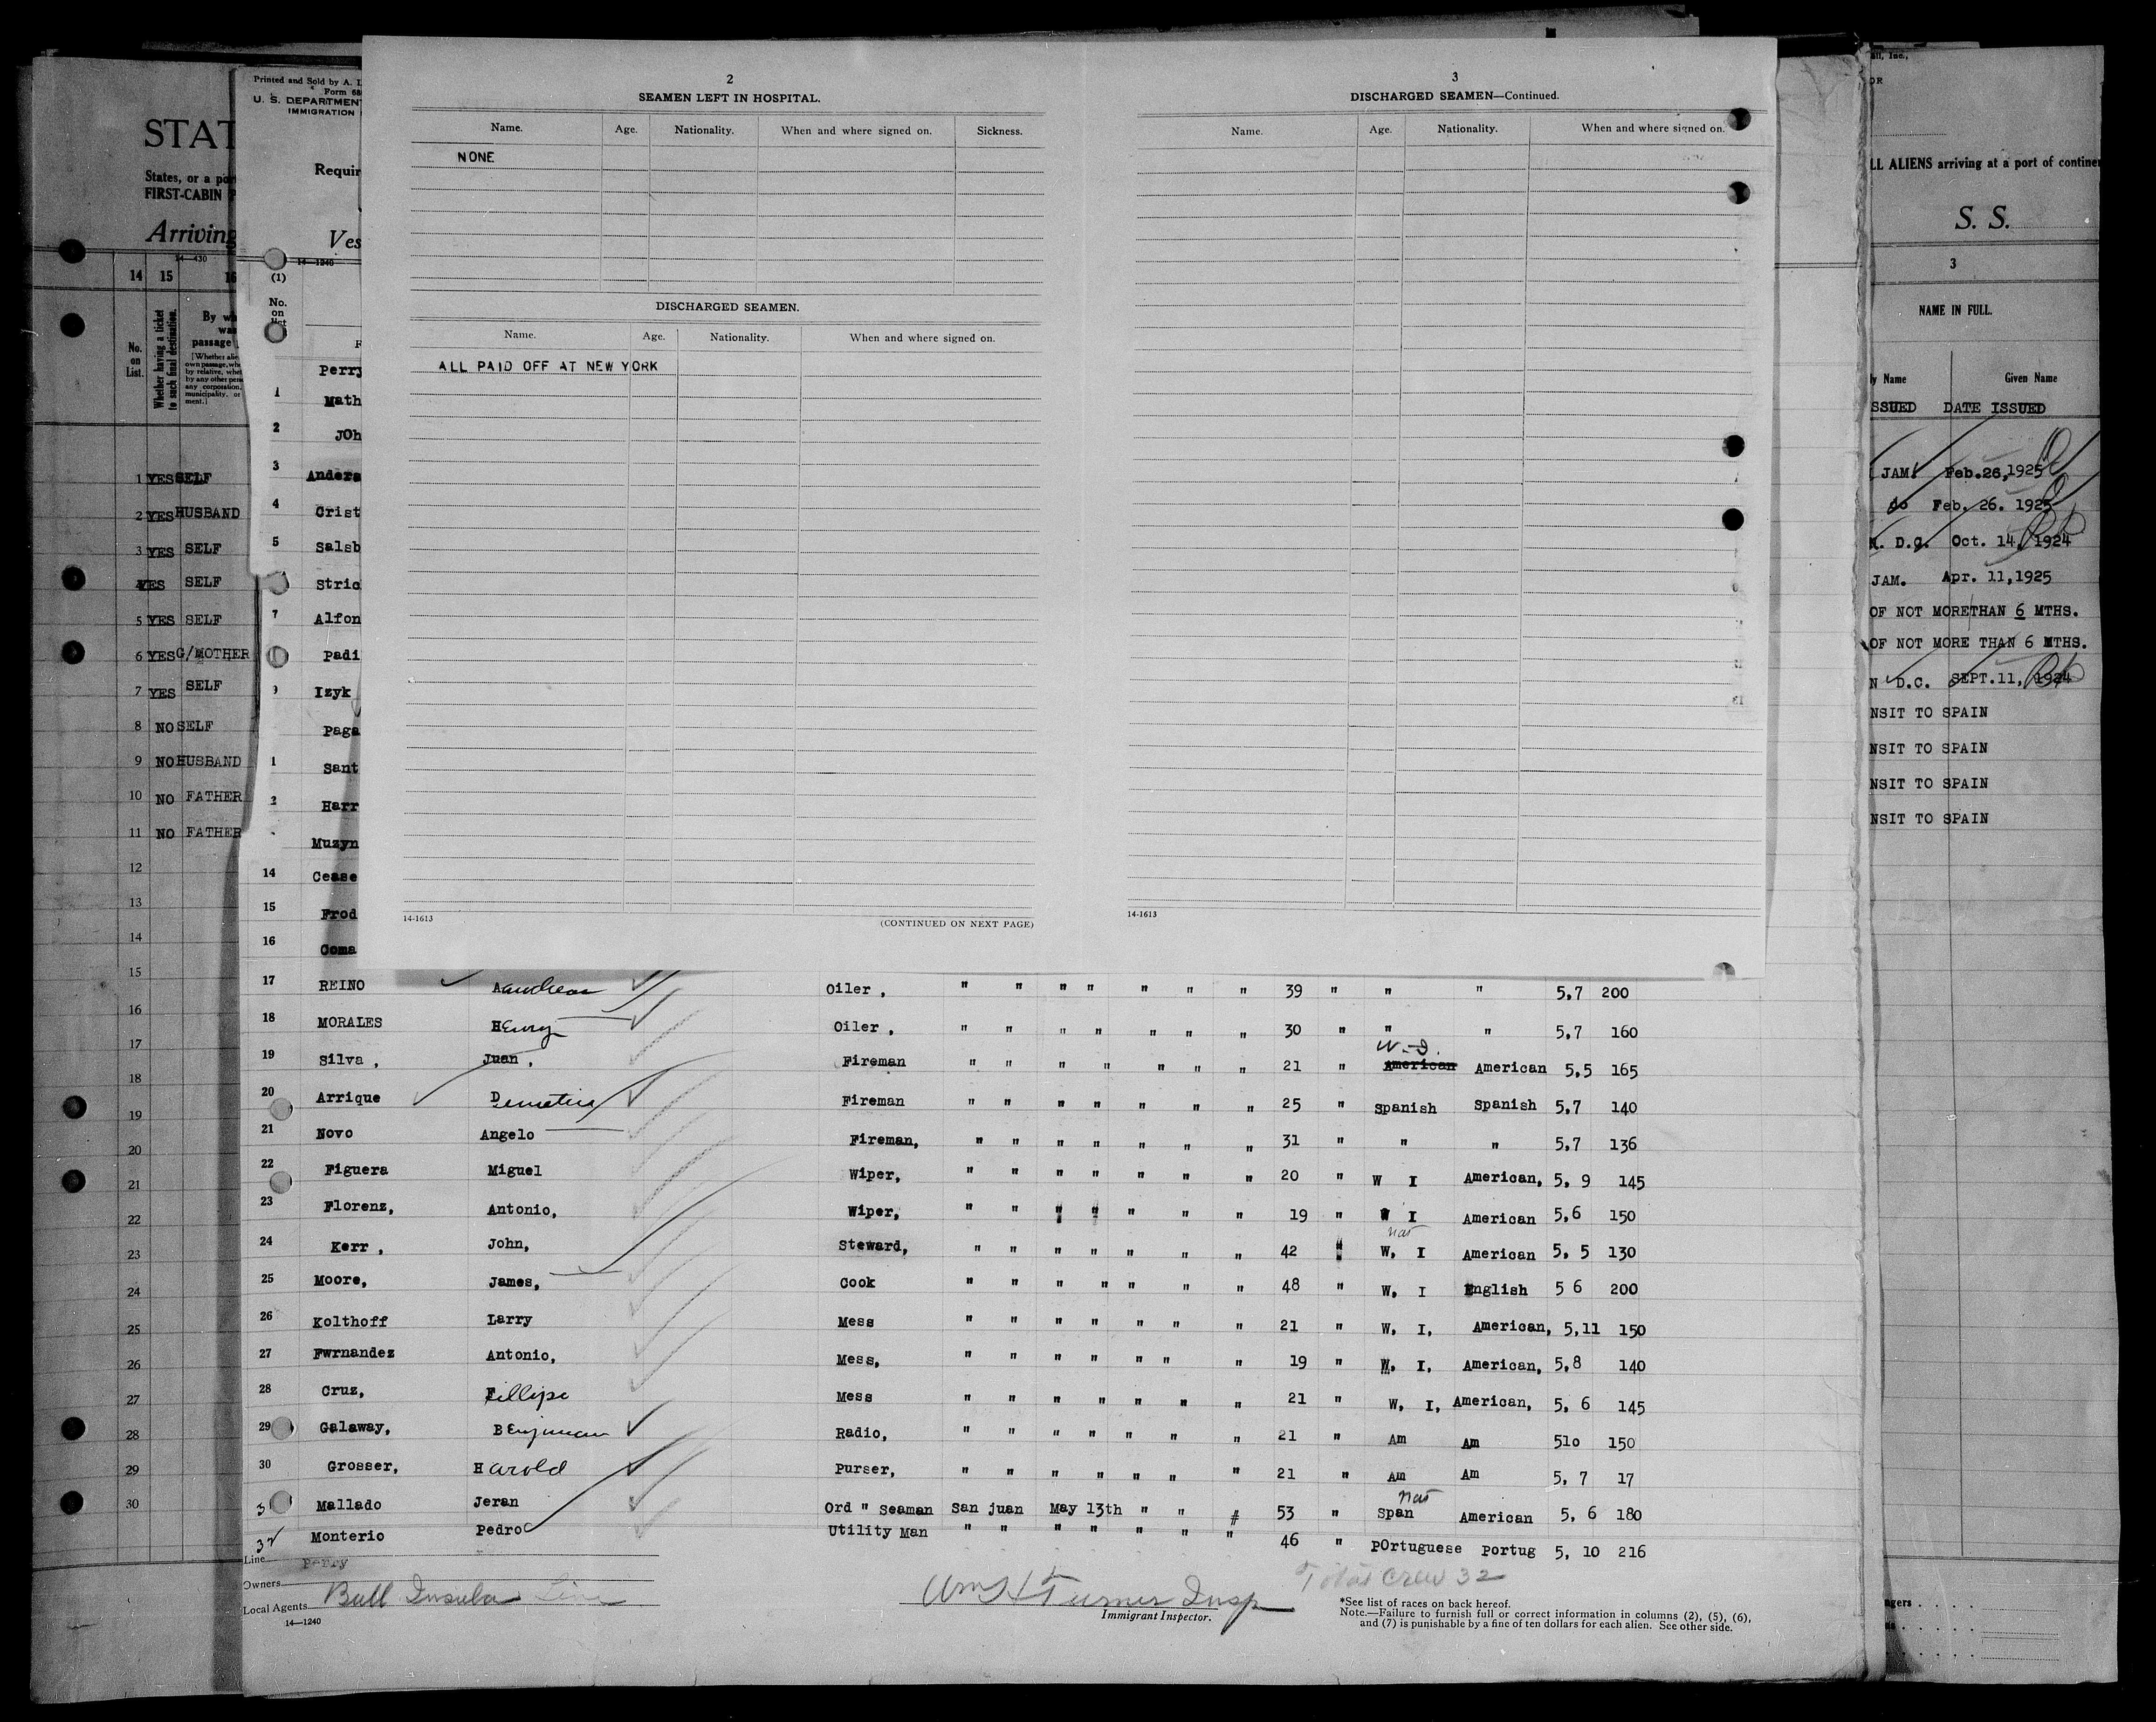 2
SEAMEN LEFT IN HOSPITAL.
Name. Age. Nationality. When and where signed on. Sickness.
NONE
DISCHARGED SEAMEN.
Name. Age. Nationality. When and where signed on.
ALL PAID OFF AT NEW YORK
14-1613 (CONTINUED ON NEXT PAGE)
3
DISCHARGED SEAMEN—Continued.
Name. Age. Nationality. When and where signed on.
14-1613
STAT
States, or a po
FIRST-CABIN
Arriving
14—430
14 15 16
No. on List.
Whether having a ticket to such final destination.
By wh
was
passage
[Whether alie
own passage, wh
by relative, whe
by any other per
any corporation,
municipality, or
ment.]
1 YES SELF
2 YES HUSBAND
3 YES SELF
4 YES SELF
5 YES SELF
6 YES G/MOTHER
7 YES SELF
8 NO SELF
9 NO HUSBAND
10 NO FATHER
11 NO FATHER
12
13
14
15
16
17
18
19
20
21
22
23
24
25
26
27
28
29
30
Printed and Sold by A. L
Form 68
U. S. DEPARTMENT
IMMIGRATION
Requir
Ves
14—1240
(1)
No. on list
F
Perry
1 Math
2 JOh
3 Anders
4 Crist
5 Salsb
Stric
7 Alfon
Padi
9 Izyk
Paga
1 Sant
2 Harr
Muzyn
14 Cease
15 Frod
16 Coma
17 REINO Aandreas Oiler , " " " " " " " 39 " " " 5,7 200
18 MORALES Henry Oiler , " " " " " " " 30 " " " 5,7 160
W. I.
19 Silva , Juan , Fireman " " " " " " " 21 " American American 5,5 165
20 Arrique Demetius Fireman " " " " " " " 25 " Spanish Spanish 5,7 140
21 Novo Angelo Fireman, " " " " " " " 31 " " " 5,7 136
22 Figuera Miguel Wiper, " " " " " " " 20 " W I American, 5, 9 145
23 Florenz, Antonio, Wiper, " " " " " " " 19 " W I American 5,6 150
nat
24 Kerr , John, Steward, " " " " " " " 42 " W, I American 5, 5 130
25 Moore, James, Cook " " " " " " " 48 " W, I English 5 6 200
26 Kolthoff Larry Mess " " " " " " " 21 " W, I, American, 5,11 150
27 Fwrnandez Antonio, Mess, " " " " " " " 19 " W, I, American, 5,8 140
28 Cruz, Fillipe Mess " " " " " " " 21 " W, I, American, 5, 6 145
29 Galaway, BEnjiman Radio, " " " " " " " 21 " Am Am 51o 150
30 Grosser, Harold Purser, " " " " " " " 21 " Am Am 5, 7 17
nat
3 Mallado Jeran Ord " Seaman San juan May 13th " " # 53 " Span American 5, 6 180
32 Monterio Pedro Utility Man " " " " " " " 46 " POrtuguese Portug 5, 10 216
Line Perry
Owners
Local Agents Bull Insular Line
14—1240
Wm H Turner Insp
Immigrant Inspector.
Total Crew 32
*See list of races on back hereof.
Note.—Failure to furnish full or correct information in columns (2), (5), (6),
and (7) is punishable by a fine of ten dollars for each alien. See other side.
all, Inc.,
OR
LL ALIENS arriving at a port of continen
S. S.
3
NAME IN FULL.
ly Name Given Name
SSUED DATE ISSUED
JAM. Feb.26,1925
do Feb. 26. 1925
. D.C. Oct. 14, 1924
JAM. Apr. 11,1925
OF NOT MORETHAN 6 MTHS.
OF NOT MORE THAN 6 MTHS.
N D.C. SEPT.11, 1924
NSIT TO SPAIN
NSIT TO SPAIN
NSIT TO SPAIN
NSIT TO SPAIN
agers